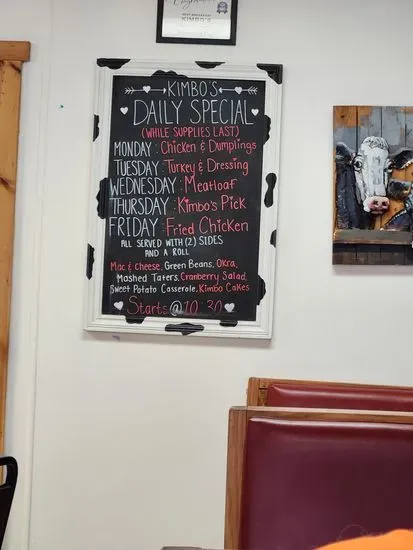 BEST BREAKFAST
KIMBO'S
KIMBO'S
DAILY SPECIAL
(WHILE SUPPLIES LAST)
MONDAY: Chicken & Dumplings
TUESDAY: Turkey & Dressing
WEDNESDAY: Meatloaf
THURSDAY: Kimbo's Pick
FRIDAY: Fried Chicken
ALL SERVED WITH (2) SIDES
AND A ROLL
Mac & Cheese, Green Beans, Okra,
Mashed Taters, Cranberry Salad,
Sweet Potato Casserole, Kimbo Cakes
Starts @ 10:30